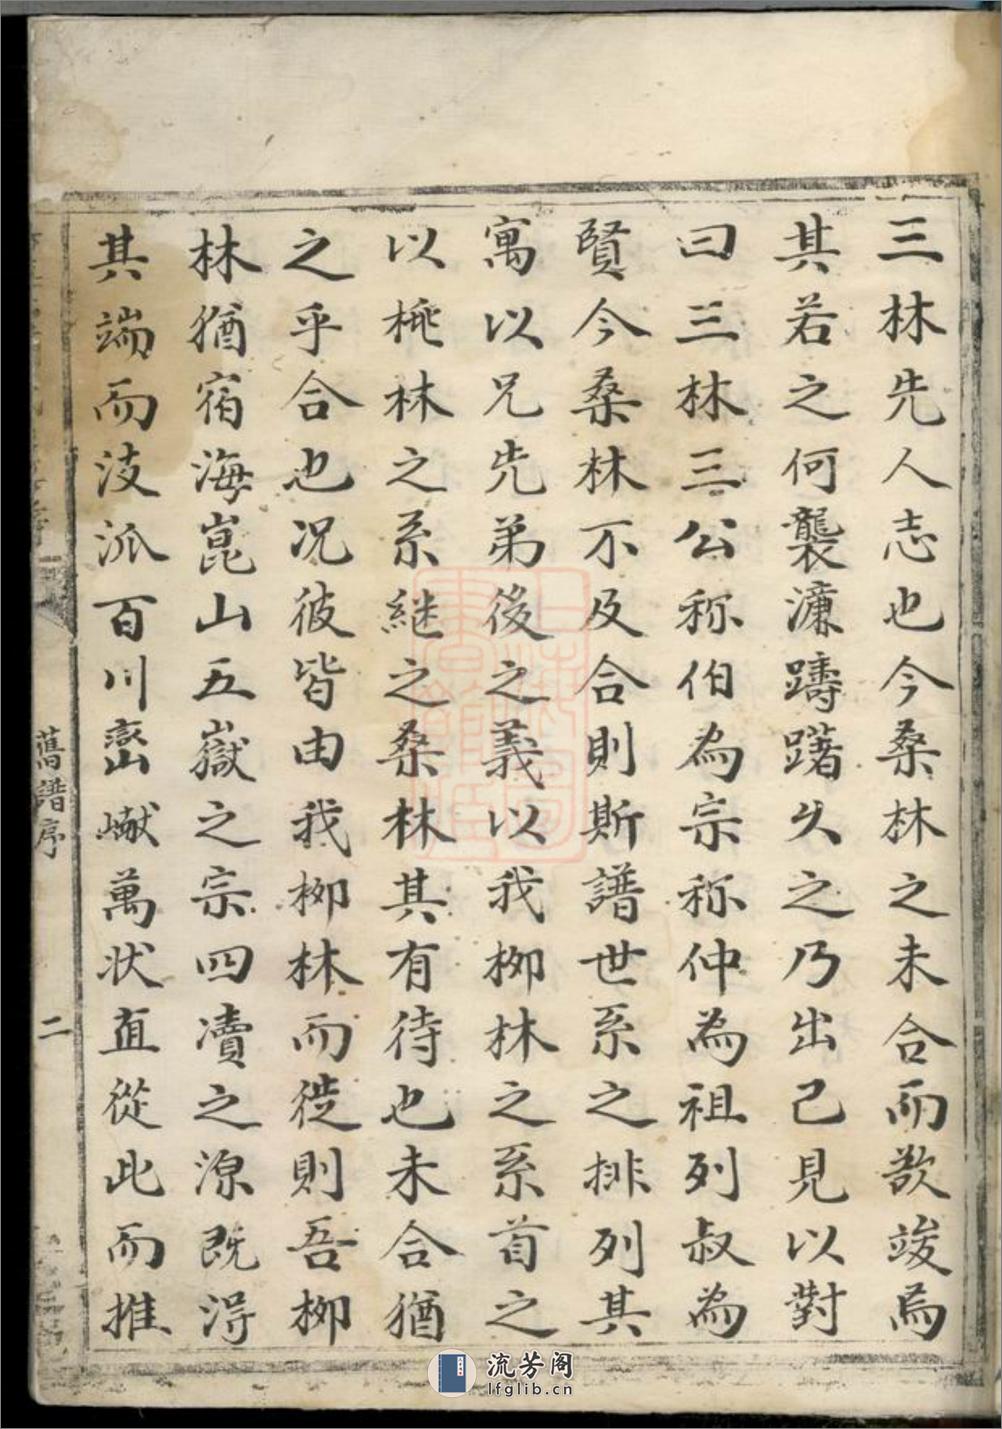 三林先人志也今桑林之未合而欲竣焉
其若之何襲濂躊躇久之乃出己見以對
曰三林三公称伯為宗称仲為祖列叔為
賢今桑林不及合則斯譜世系之排列其
寓以兄先弟後之義以我柳林之系首之
以桃林之系継之桑林其有待也未合猶
之乎合也况彼皆由我柳林而徙則吾柳
林猶宿海崑山五嶽之宗四瀆之源既淂
其端而汥派百川巒巘萬状直從此而推
舊譜序
二
流芳阁
lfglib.cn